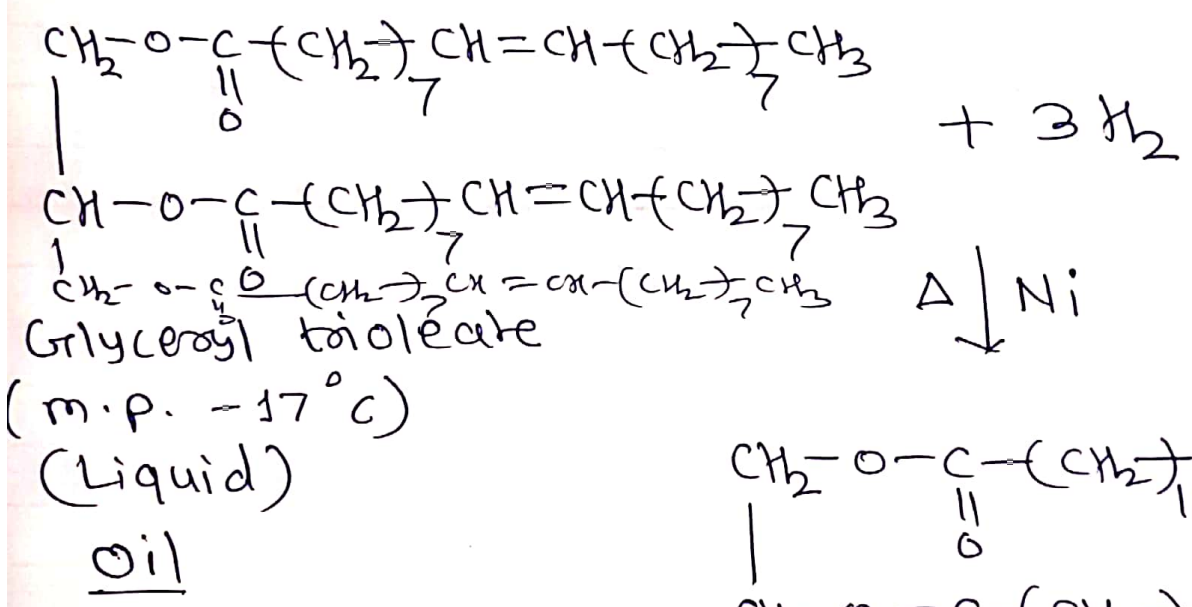 CH₂-O-C-(CH₂)₇ CH=CH-(CH₂)₇ CH₃
||
O
+ 3 H₂
CH-O-C-(CH₂)₇ CH=CH-(CH₂)₇ CH₃
||
O
CH₂-O-C-(CH₂)₇ CH=CH-(CH₂)₇ CH₃
||
O
Δ ↓ Ni
Glyceryl trioleate
(m.p. -17°C)
(Liquid)
CH₂-O-C-(CH₂)₁
||
O
Oil